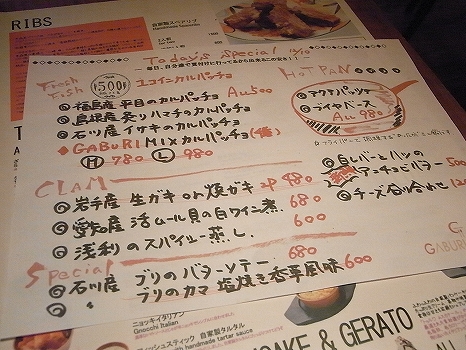 RIBS
自家製スペアリブ
Today's Special 12/10
Fresh Fish
¥500
ワコインカルパッチョ
ALL 500
◎福島産 平目のカルパッチョ
◎島根産 炙りハマチのカルパッチョ
◎石川産 イサキのカルパッチョ
◆GABURI MIXカルパッチョ(4種)
Ⓜ 780 Ⓛ 980
HOT PAN
◎アクアパッツァ
◎ブイヤベース
ALL 980
CLAM
◎岩手産 生ガキ or 焼ガキ 2P 480
◎愛知産 活ムール貝の白ワイン煮 680
◎浅利のスパイシー蒸し 600
◎白レバーとハツの
アンチョビバター 500
◎チーズ盛り合わせ
Special
◎石川産 ブリのバターソテー 680
◎ 〃 ブリのカマ 塩焼き香草風味 600
GABU
ニョッキイタリアン
Gnocchi Italian
フィッシュスティック 自家製タルタル
with handmade tartar sauce
CAKE & GERATO